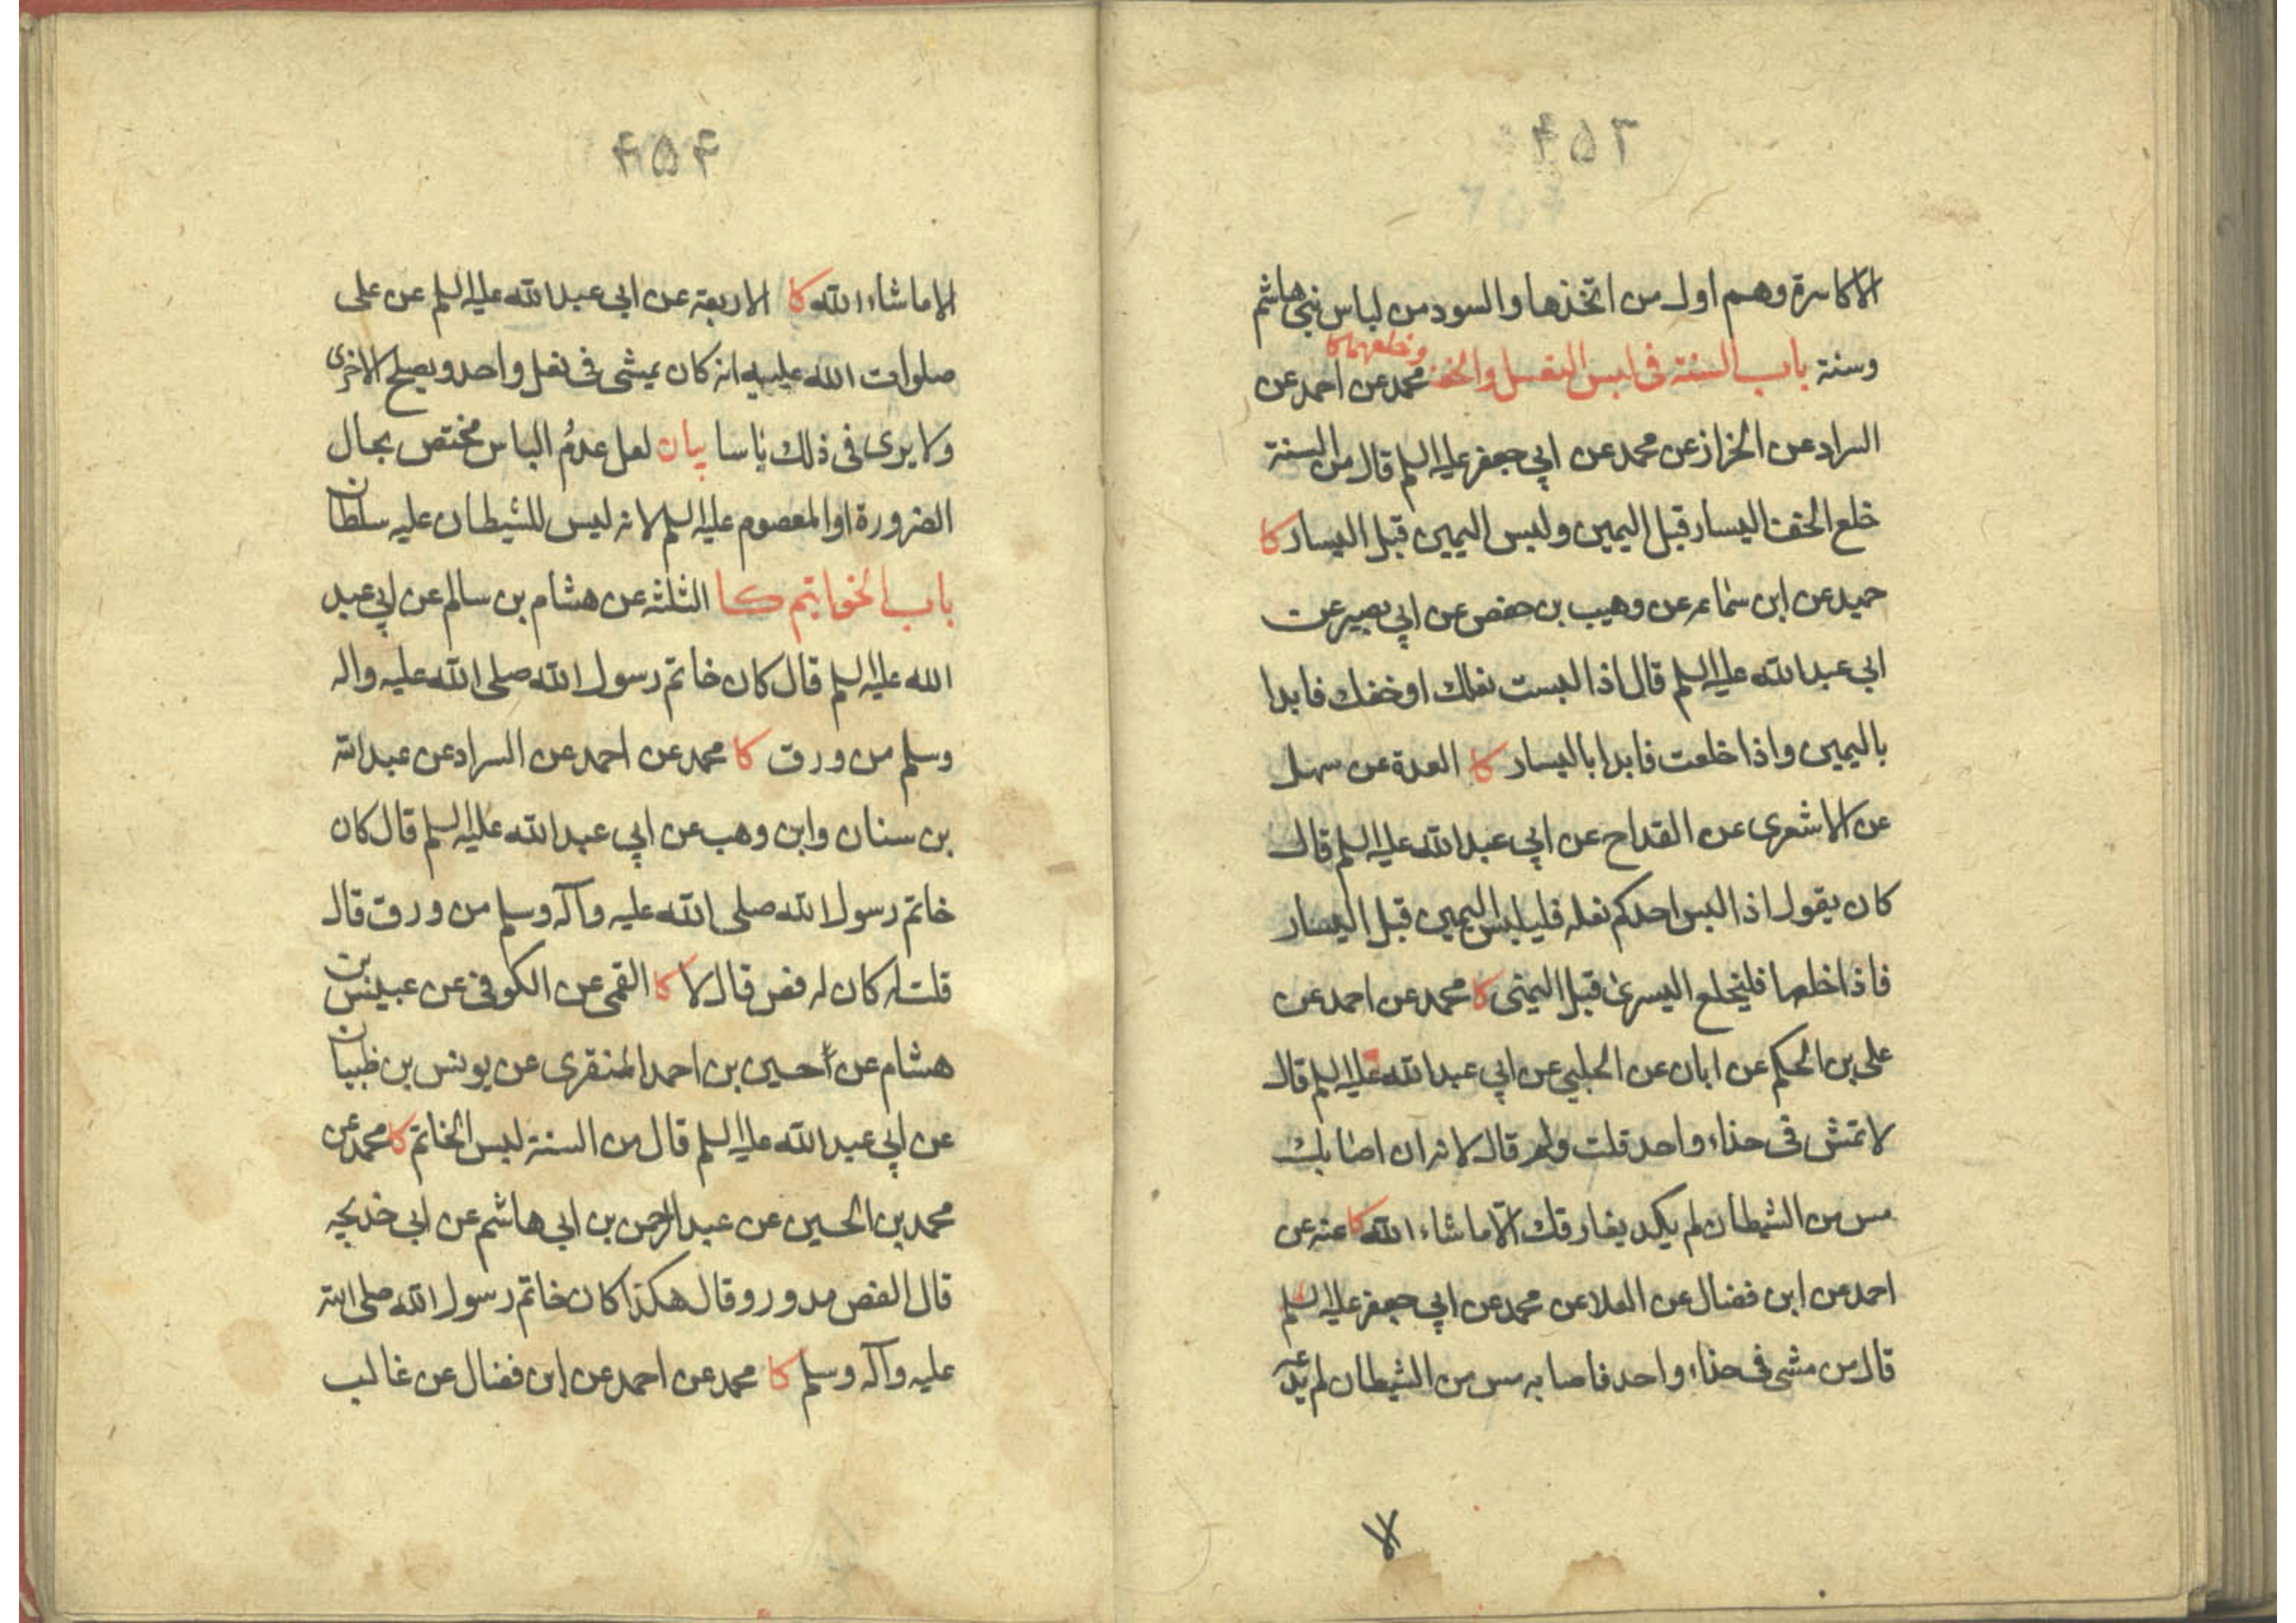 ۴۵۳
الاكاسرة وهم اول من اتخذها والسود من لباس بني هاشم
وسنة باب السنة في لبس النعل والخف وخلعهما كا محمد عن احمد عن
السراد عن الخراز عن محمد عن ابي جعفر عليه السلم قال من السنة
خلع الخف اليسار قبل اليمين ولبس اليمين قبل اليسار كا
حميد عن ابن سماعه عن وهيب بن حفص عن ابي بصير عن
ابي عبد الله عليه السلم قال اذا لبست نعلك او خفك فابدا
باليمين واذا خلعت فابدا باليسار كا العدة عن سهل
عن الاشعرى عن القداح عن ابي عبد الله عليه السلم قال
كان يقول اذا لبس احدكم نعله فليلبس اليمين قبل اليسار
فاذا خلعها فليخلع اليسرى قبل اليمنى كا محمد عن احمد عن
على بن الحكم عن ابان عن الحلبي عن ابي عبد الله عليه السلم قال
لا تمش فى حذاء واحد قلت ولم قال لانه ان اصابك
مس من الشيطان لم يكد يفارقك الا ما شاء الله كا عنه عن
احمد عن ابن فضال عن العلا عن محمد عن ابي جعفر عليه السلم
قال من مشى فى حذاء واحد فاصابه مس من الشيطان لم يدعه
الا
۴۵۴
الا ما شاء الله كا الاربعة عن ابي عبد الله عليه السلم عن على
صلوات الله عليه انه كان يمشى فى نعل واحد ويصلح الاخرى
ولا يرى فى ذلك باسا بيان لعل عدم الباس مختص بحال
الضرورة او المعصوم عليه السلم لانه ليس للشيطان عليه سلطان
باب الخواتيم كا الثلثه عن هشام بن سالم عن ابي عبد
الله عليه السلم قال كان خاتم رسول الله صلى الله عليه واله
وسلم من ورق كا محمد عن احمد عن السراد عن عبد الله
بن سنان وابن وهب عن ابي عبد الله عليه السلم قال كان
خاتم رسول الله صلى الله عليه وآله وسلم من ورق قال
قلت له كان له فص قال لا كا القمى عن الكوفى عن عبيس بن
هشام عن حسين بن احمد المنقرى عن يونس بن ظبيان
عن ابي عبد الله عليه السلم قال من السنة لبس الخاتم كا محمد عن
محمد بن الحسين عن عبد الرحمن بن ابي هاشم عن ابي خديجه
قال الفص مدور وقال هكذا كان خاتم رسول الله صلى الله
عليه وآله وسلم كا محمد عن احمد عن ابن فضال عن غالب